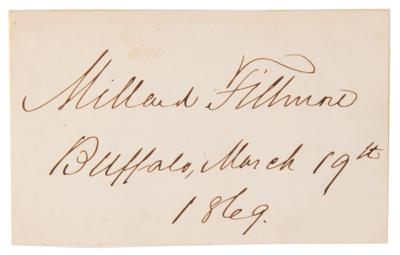 Millard Fillmore
Buffalo, March 19th
1869.